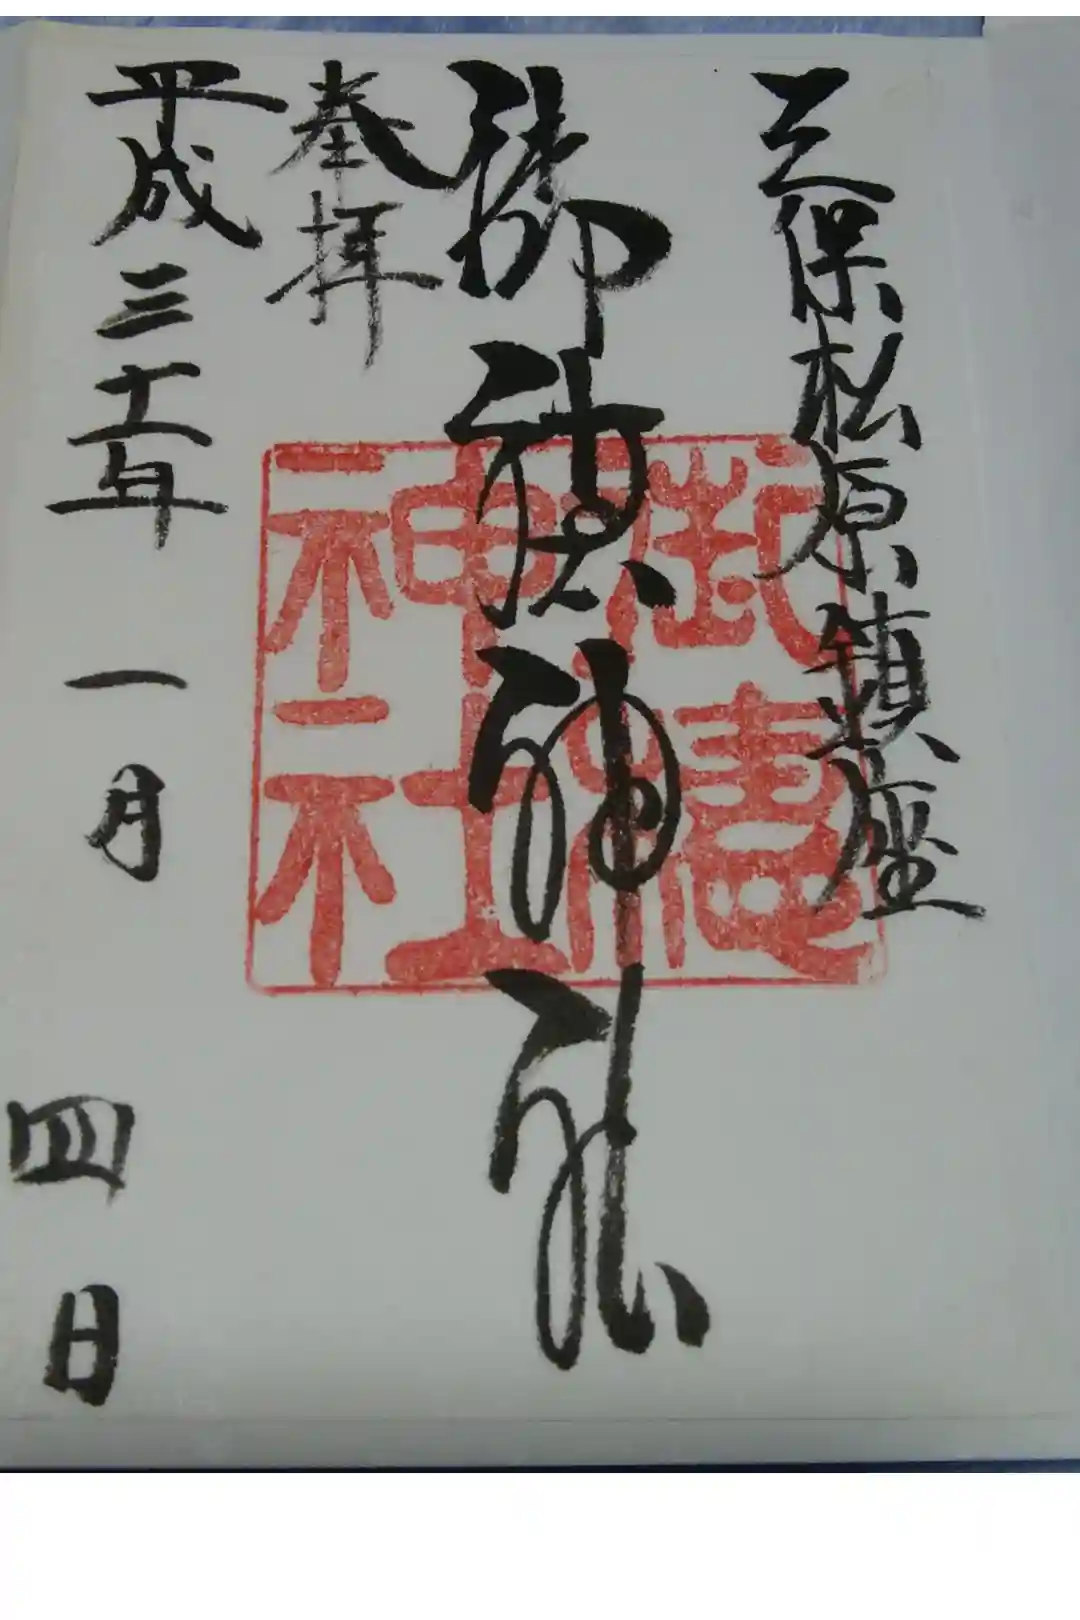 三保松原鎮座
御穂神社
奉拝
平成三十一年一月四日
御穂神社